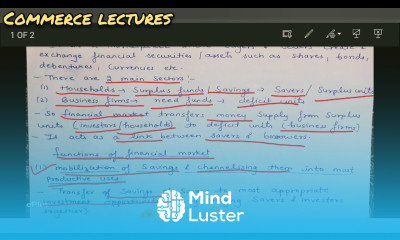 COMMERCE LECTURES
1 OF 2
exchange financial securities/assets such as shares, bonds,
debentures, currencies etc.
- There are 2 main sectors:-
(1) Households → Surplus funds/Savings → Savers/Surplus units
(2) Business firms → need funds → deficit units
- So financial market transfers money supply from Surplus
units (investors/households) to deficit units (business firms)
- It acts as a link between savers & borrowers.
functions of financial market
(1) mobilization of Savings & channelising them into most
Productive uses-
- Transfer of savings to most appropriate
Savers & investors
Mind
Luster